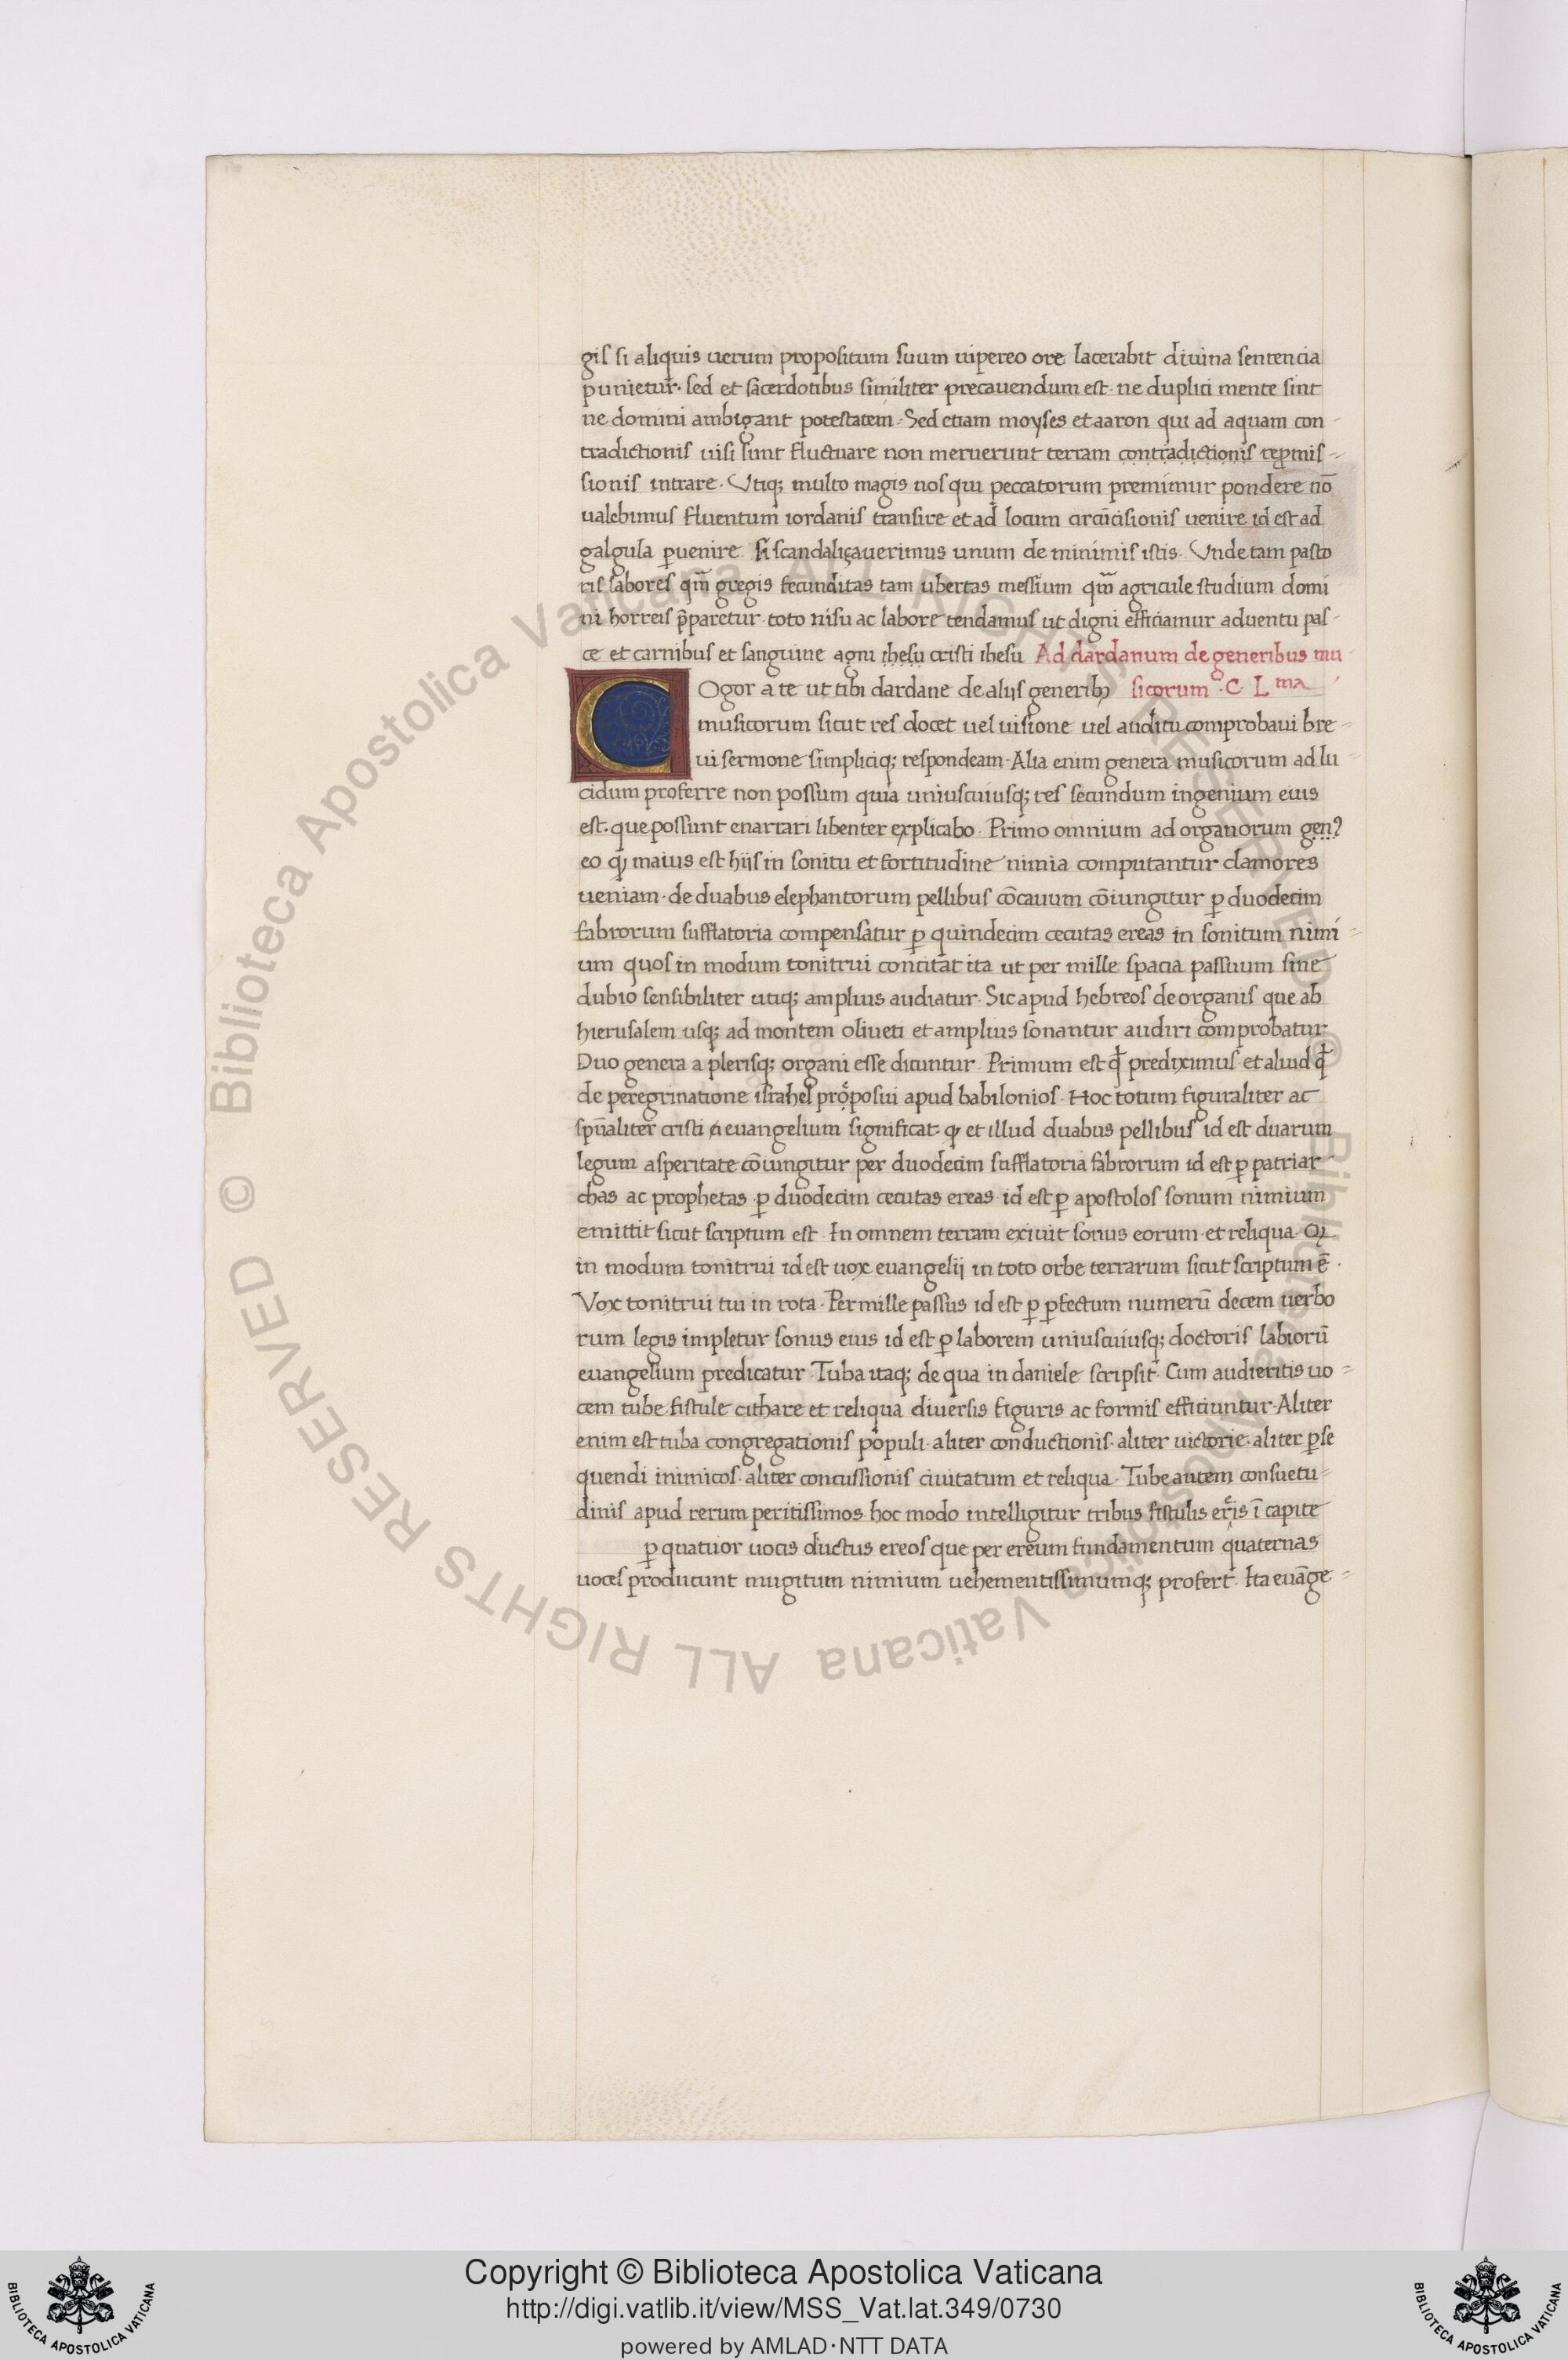 gis si aliquis uerum propositum suum uipereo ore lacerabit diuina sentencia
punietur. sed et sacerdotibus similiter precauendum est. ne duplici mente sint
ne domini ambigant potestatem. Sed etiam moyses et aaron qui ad aquam con
tradictionis uisi sunt fluctuare non meruerunt terram contradictionis repmis
sionis intrare. Utiq; multo magis nos qui peccatorum premimur pondere nō
ualebimus fluentum iordanis transire et ad locum circūcisionis uenire id est ad
galgula ꝑuenire. si scandalizauerimus unum de minimis istis. Vnde tam pasto
ris labores qm̄ gregis fecunditas tam ubertas messium qm̄ agricule studium domi
ni horreis p̄paretur. toto nisu ac labore tendamus ut digni efficiamur aduentu pas
ce et carnibus et sanguine agni ihesu cristi ihesu Ad dardanum de generibus mu
COgor a te ut tibi dardane de aliis generibꝫ sicorum. C Lma
musicorum sicut res docet uel uisione uel auditu comprobaui bre
ui sermone simpliciq; respondeam. Alia enim genera musicorum ad lu
cidum proferre non possum quia uniuscuiusq; res secundum ingenium eius
est. que possunt enarrari libenter explicabo. Primo omnium ad organorum gen?
eo ꝙ maius est hiis in sonitu et fortitudine nimia computantur clamores
ueniam. de duabus elephantorum pellibus cōcauum cōiungitur ꝑ duodecim
fabrorum sufflatoria compensatur ꝑ quindecim cecutas ereas in sonitum nimi
um quos in modum tonitrui concitat ita ut per mille spacia passuum sine
dubio sensibiliter utiq; amplius audiatur. Sic apud hebreos de organis que ab
hierusalem usq; ad montem oliueti et amplius sonantur audiri comprobatur
Duo genera a plerisq; organi esse dicuntur. Primum est qd̄ prediximus et aliud qd̄
de peregrinatione israhel proposui apud babilonios. Hoc totum figuraliter ac
spūaliter cristi euangelium significat. ꝙ et illud duabus pellibus id est duarum
legum asperitate cōiungitur per duodecim sufflatoria fabrorum id est ꝑ patriar
chas ac prophetas ꝑ duodecim cecutas ereas id est ꝑ apostolos sonum nimium
emittit sicut scriptum est. In omnem terram exiuit sonus eorum et reliqua. Ꝙ
in modum tonitrui id est uox euangelii in toto orbe terrarum sicut scriptum ē.
Vox tonitrui tui in rota. Per mille passus id est ꝑ ꝑfectum numerū decem uerbo
rum legis impletur sonus eius id est ꝑ laborem uniuscuiusq; doctoris labiorū
euangelium predicatur. Tuba itaq; de qua in daniele scripsit. Cum audieritis uo
cem tube fistule cithare et reliqua diuersis figuris ac formis efficiuntur. Aliter
enim est tuba congregationis populi. aliter conductionis. aliter uictorie. aliter ꝑse
quendi inimicos. aliter concussionis ciuitatum et reliqua. Tube autem consuetu
dinis apud rerum peritissimos hoc modo intelligitur tribus fistulis ereis ī capite
ꝑ quatuor uocis ductus ereos que per ereum fundamentum quaternas
uoces producunt mugitum nimium uehementissimumq; profert. Ita euāge
© Biblioteca Apostolica Vaticana ALL RIGHTS RESERVED © Biblioteca Apostolica Vaticana ALL RIGHTS RESERVED
Copyright © Biblioteca Apostolica Vaticana
http://digi.vatlib.it/view/MSS_Vat.lat.349/0730
powered by AMLAD·NTT DATA
BIBLIOTECA APOSTOLICA VATICANA
BIBLIOTECA APOSTOLICA VATICANA